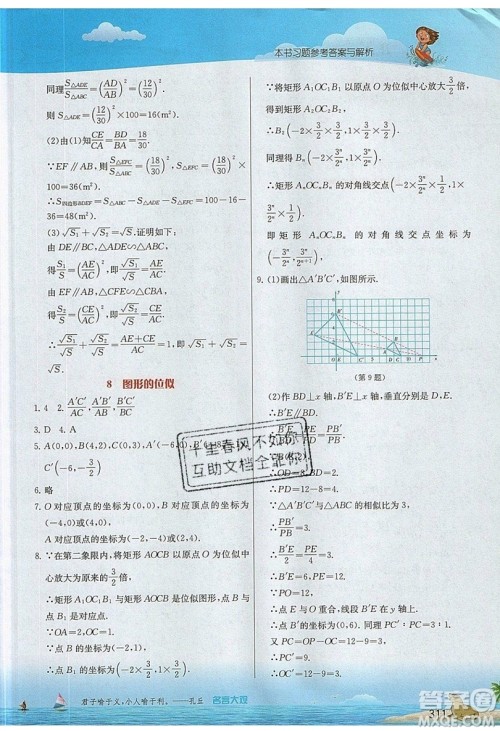 本书习题参考答案与解析
同理S△ADE/S△ABC=(AE/AC)²=(12/30)²
则 S△ADE=(12/30)²×100=16(m²).
(2)由(1)知CE/CA=BD/BA=18/30
∵EF∥AB,则S△EFC/S△ABC=(18/30)²,S△EFC=(18/30)²
×100=36(m²).
∴S四边形EFBD=S△ABC-S△ADE-S△EFC=100-16-
36=48(m²).
(3)√S₁+√S₂=√S.理由如下:
由 DE∥BC,可得△ADE∽△ABC,
得S₁/S=(AE/AC)²,即√S₁/√S=AE/AC.
由 EF∥AB,△CFE∽△CBA,
得S₂/S=(EC/AC)²,即√S₂/√S=EC/AC.
∴√S₁/√S+√S₂/√S=AE+EC/AC=1,即√S₁+√S₂=√S.
8 图形的位似
1. 4 2. A′C′/AC,B′C′/BC,A′B′/AB
3. D 4. A
5. A(0,0),B(4,2),C(
C′(-6,-3/2)
6. 略
7. O对应顶点的坐标为(0,0),A对应顶点的坐标
为(-2,-4),B对应顶点的坐标为(-4,2).
8. ∵在第二象限内,将矩形 AOCB 以原点 O 为位似中
心放大为原来的3/2倍,
∴矩形 A₁OC₁B₁ 与矩形 AOCB 是位似图形,点 B
与点 B₁ 是对应点.
∵OA=2,OC=1.
∵点 B 的坐标为(-2,1),
∴点 B₁ 的坐标为(-2×3/2,1×3/2).
∵将矩形 A₁OC₁B₁ 以原点 O 为位似中心放大3/2倍,
得到矩形 A₂OC₂B₂…,
∴B₂(-2×3/2×3/2,1×3/2×3/2).
同理得 Bₙ(-2×3ⁿ/2ⁿ,1×3ⁿ/2ⁿ).
∵矩形 AₙOCₙBₙ 的对角线交点(-2×3ⁿ/2ⁿ×1/2,1×
3ⁿ/2ⁿ×1/2).
即矩形 AₙOCₙBₙ 的对角线交点的坐标为
(-3ⁿ/2ⁿ,3ⁿ/2ⁿ⁺¹).
9. (1)画出△A′B′C′,如图所示.
(第 9 题)
(2)作 BD⊥x 轴,B′E⊥x 轴,垂直分别是 D,E.
∴B′E∥BD.
∴B′E/BD=PE/PD=PB′/PB
∵B(8,2),
∴OD=8,BD=2.
∴PD=12-8=4.
∴PB′/PB=3.
∴B′E/2=PE/4=3.
∴B′E=6,PE=12.
∵PO=12,
∴点 E 与原点重合,线段 B′E 在 y 轴上.
∴点 B′的坐标为(0,6).
同理PC′/PC=3.
又∵PC=3,
∴OC′=OP-PC′=12-9=3.
∴点 C′的坐标为(3,0).
千里春风不如你
互助文档全靠你
君子喻于义,小人喻于利。——孔丘 名言大观
311
答案圈
MXQE.COM